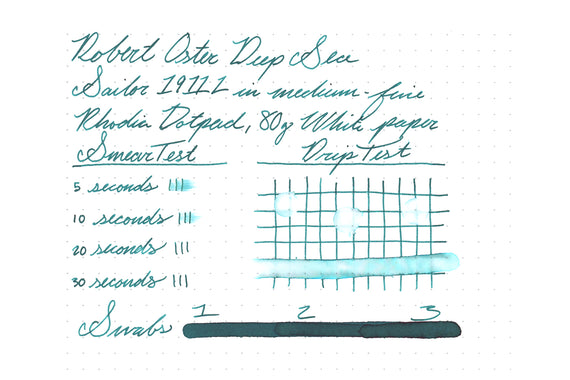 Robert Oster Deep Sea
Sailor 1911L in medium-fine
Rhodia Dotpad, 80g White paper
Smear Test
Drip Test
5 seconds
10 seconds
20 seconds
30 seconds
Swabs 1 2 3